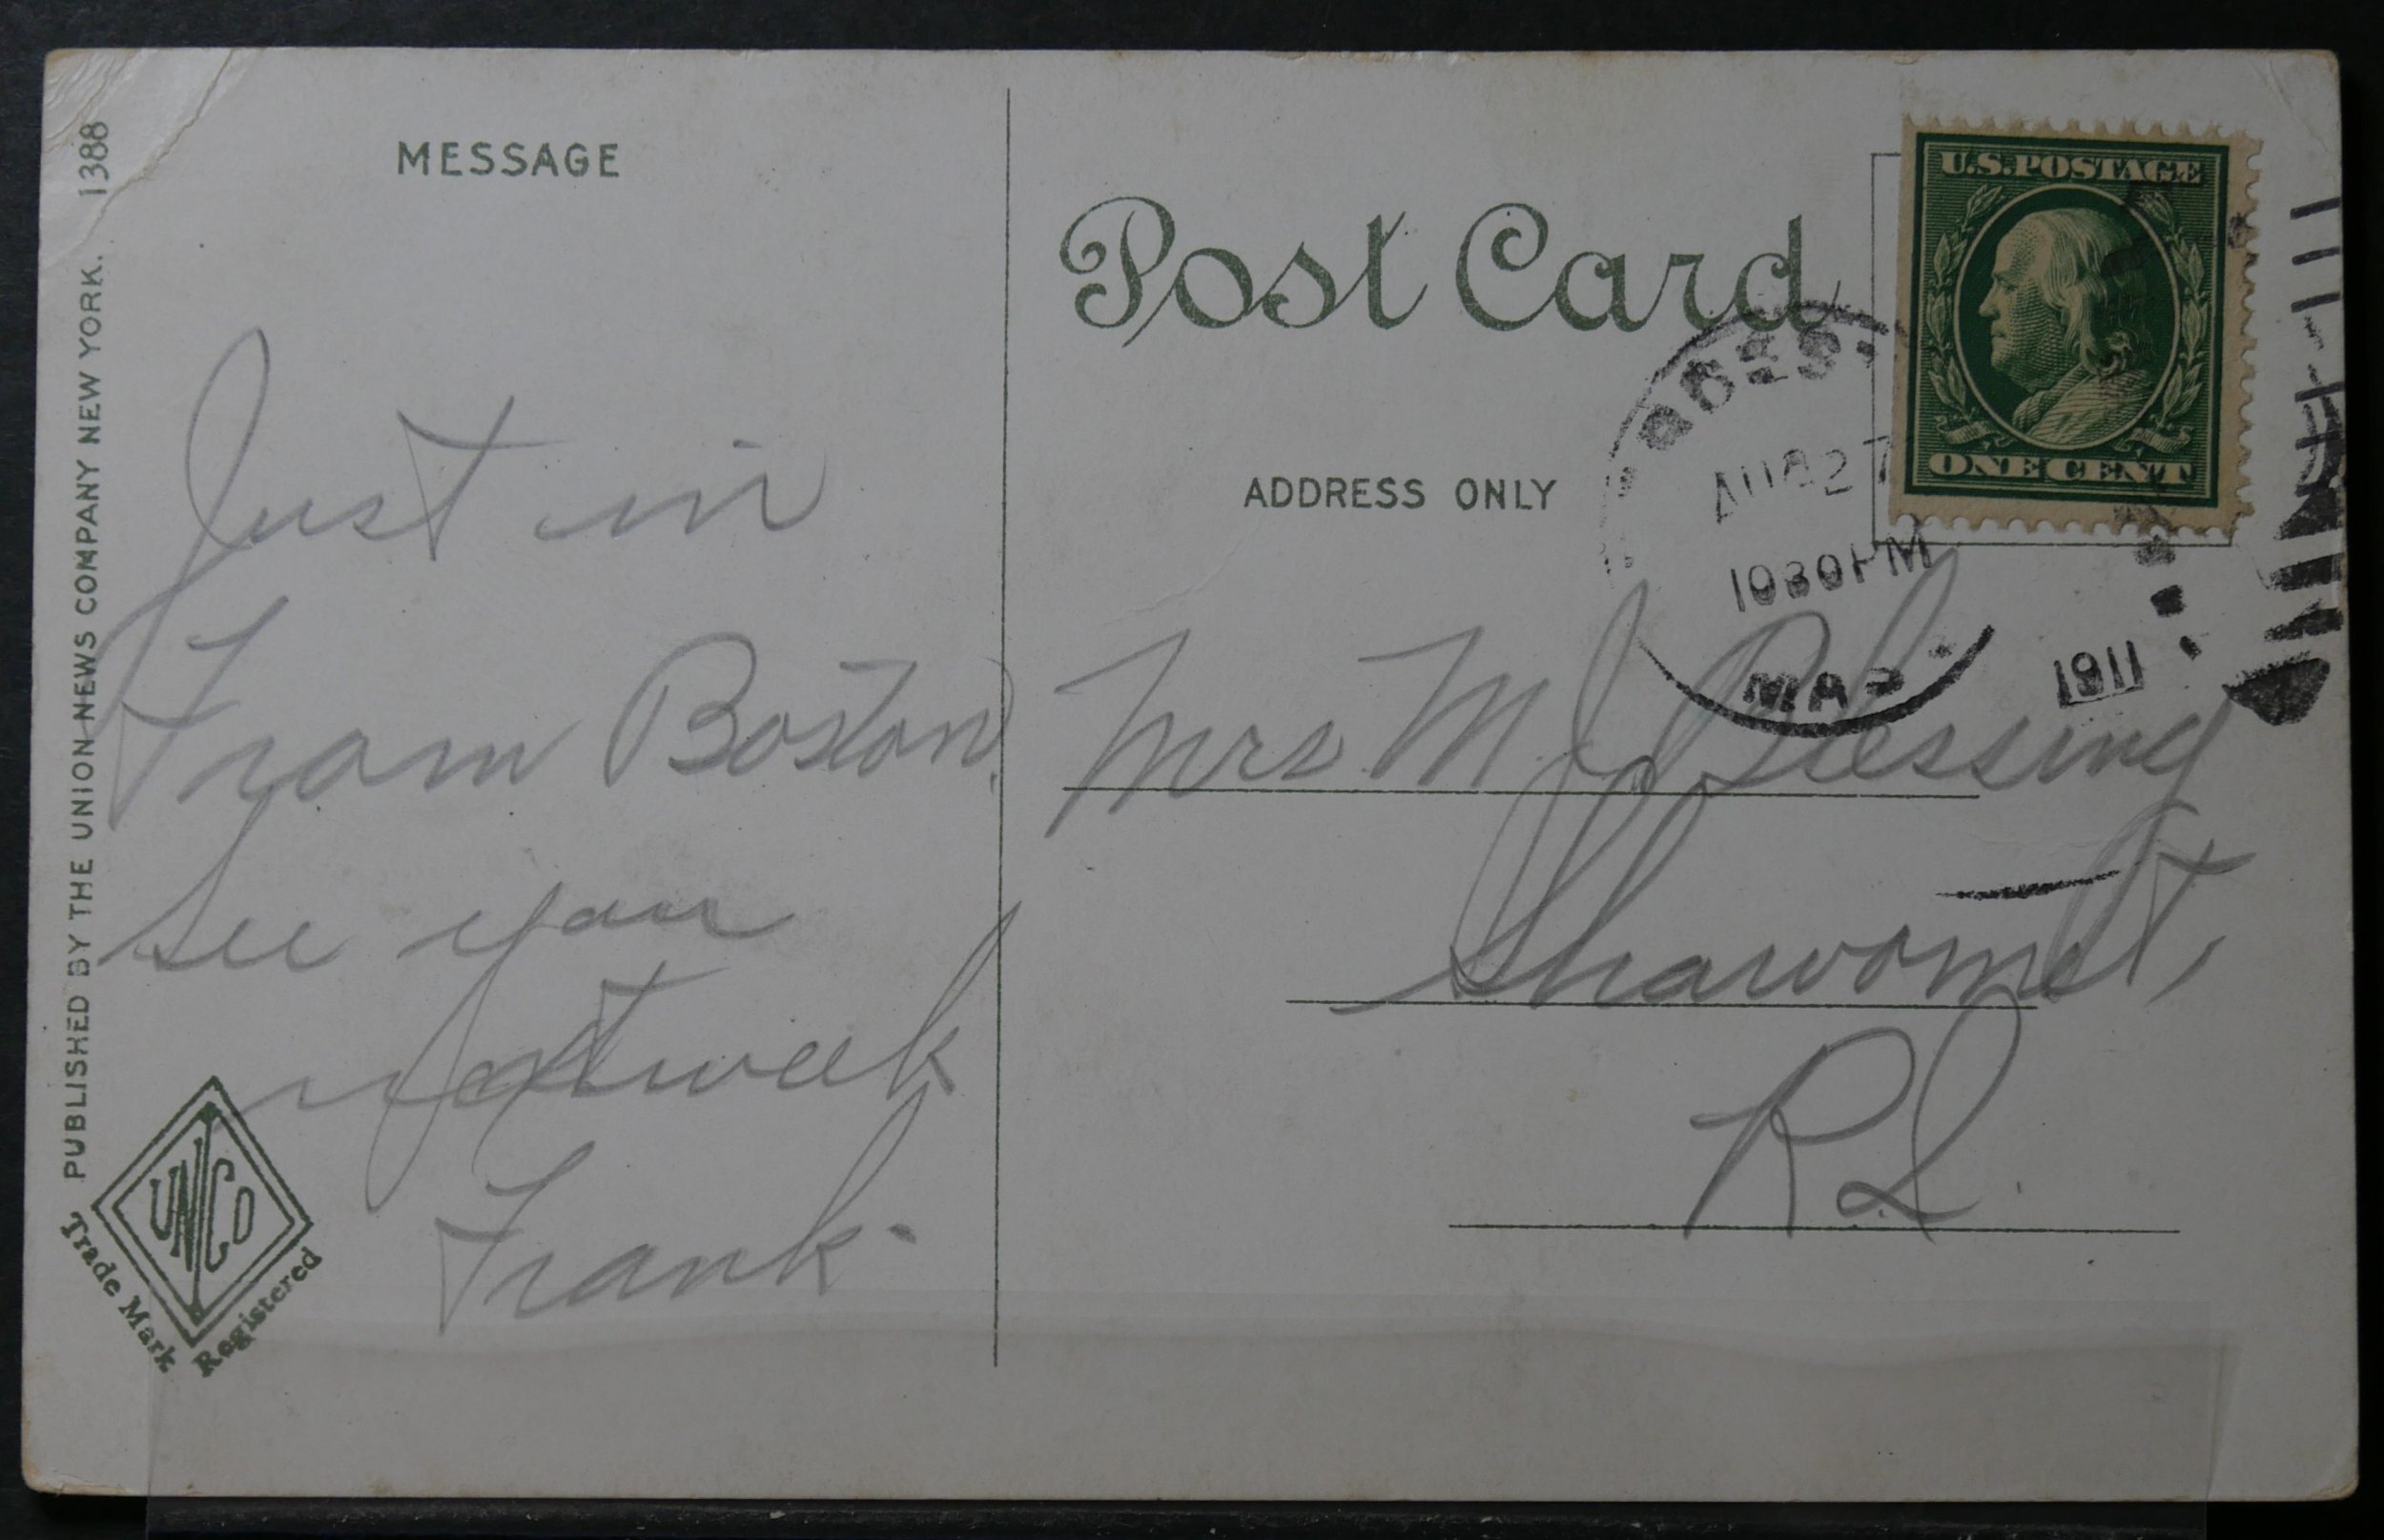 PUBLISHED BY THE UNION NEWS COMPANY NEW YORK. 1388
MESSAGE
Just in
From Boston.
See you
next week
Frank
UNCO
Trade Mark Registered
Post Card
ADDRESS ONLY
U.S.POSTAGE
ONE CENT
AUG 27
1030PM
1911
Mrs M. J. Blessing
Shawomet,
R I.